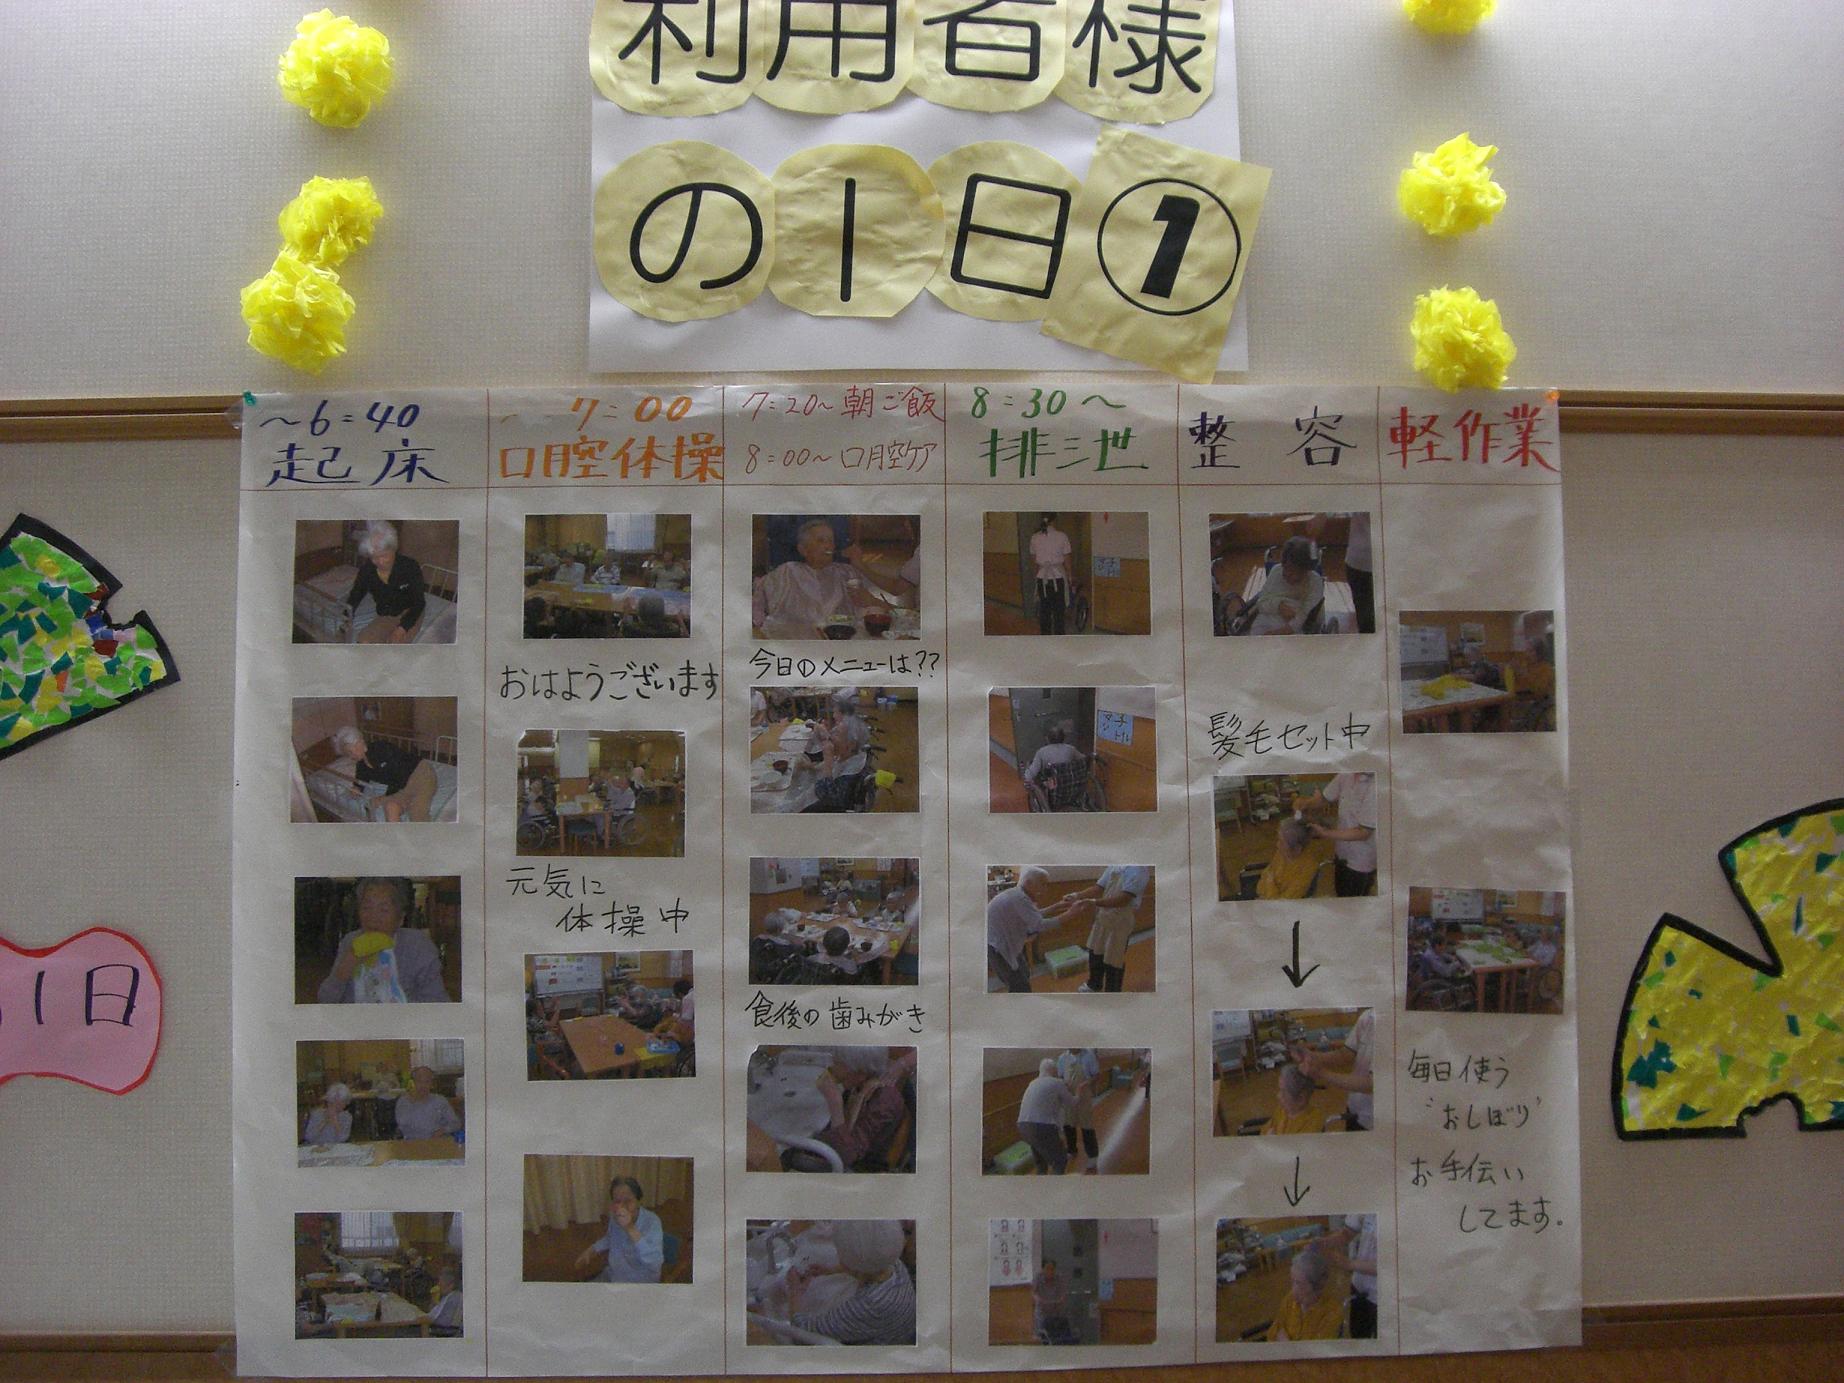 利用者様
の1日①
～6:40
起床
7:00
口腔体操
7:20～朝ご飯
8:00～口腔ケア
8:30～
排泄
整容
軽作業
おはようございます
元気に
体操中
今日のメニューは??
食後の歯みがき
髪毛セット中
↓
↓
毎日使う
"おしぼり"
お手伝い
してます。
1日